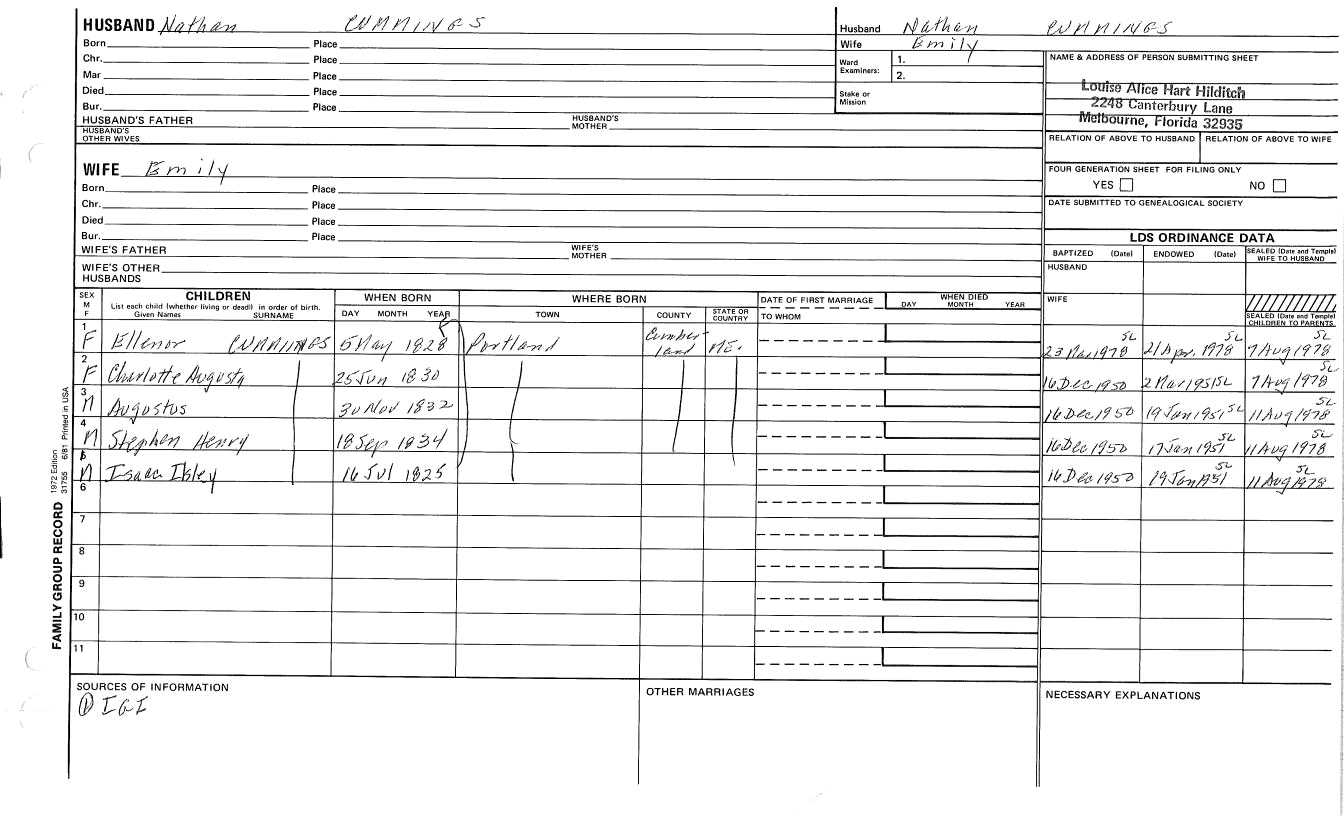 HUSBAND Nathan CUMMINGS
Born Place
Chr. Place
Mar Place
Died Place
Bur. Place
HUSBAND'S FATHER HUSBAND'S MOTHER
HUSBAND'S OTHER WIVES
Husband Nathan CUMMINGS
Wife Emily
Ward Examiners: 1.
2.
Stake or Mission
NAME & ADDRESS OF PERSON SUBMITTING SHEET
Louise Alice Hart Hilditch
2248 Canterbury Lane
Melbourne, Florida 32935
RELATION OF ABOVE TO HUSBAND RELATION OF ABOVE TO WIFE
FOUR GENERATION SHEET FOR FILING ONLY
YES NO
DATE SUBMITTED TO GENEALOGICAL SOCIETY
WIFE Emily
Born Place
Chr. Place
Died Place
Bur. Place
WIFE'S FATHER WIFE'S MOTHER
WIFE'S OTHER HUSBANDS
LDS ORDINANCE DATA
BAPTIZED (Date) ENDOWED (Date) SEALED (Date and Temple) WIFE TO HUSBAND
HUSBAND
WIFE
SEALED (Date and Temple) CHILDREN TO PARENTS
SEX M F CHILDREN WHEN BORN WHERE BORN DATE OF FIRST MARRIAGE WHEN DIED
List each child (whether living or dead) in order of birth.
Given Names SURNAME DAY MONTH YEAR TOWN COUNTY STATE OR COUNTRY TO WHOM DAY MONTH YEAR
1 F Ellenor CUMMINGS 5 May 1828 Portland Cumberland ME. 23 Mar 1978 21 Apr. 1978 SL 7 Aug 1978 SL
2 F Charlotte Augusta 25 Jun 1830 16 Dec 1950 2 Mar 1951 SL 7 Aug 1978 SL
3 M Augustus 30 Nov 1832 16 Dec 1950 19 Jan 1951 SL 11 Aug 1978 SL
4 M Stephen Henry 18 Sep 1834 16 Dec 1950 17 Jan 1951 SL 11 Aug 1978
5 M Isaac Ilsley 16 Jul 1825 16 Dec 1950 19 Jan 1951 SL 11 Aug 1978 SL
6
7
8
9
10
11
FAMILY GROUP RECORD 1972 Edition 31755 6/81 Printed in USA
SOURCES OF INFORMATION
① IGI
OTHER MARRIAGES
NECESSARY EXPLANATIONS